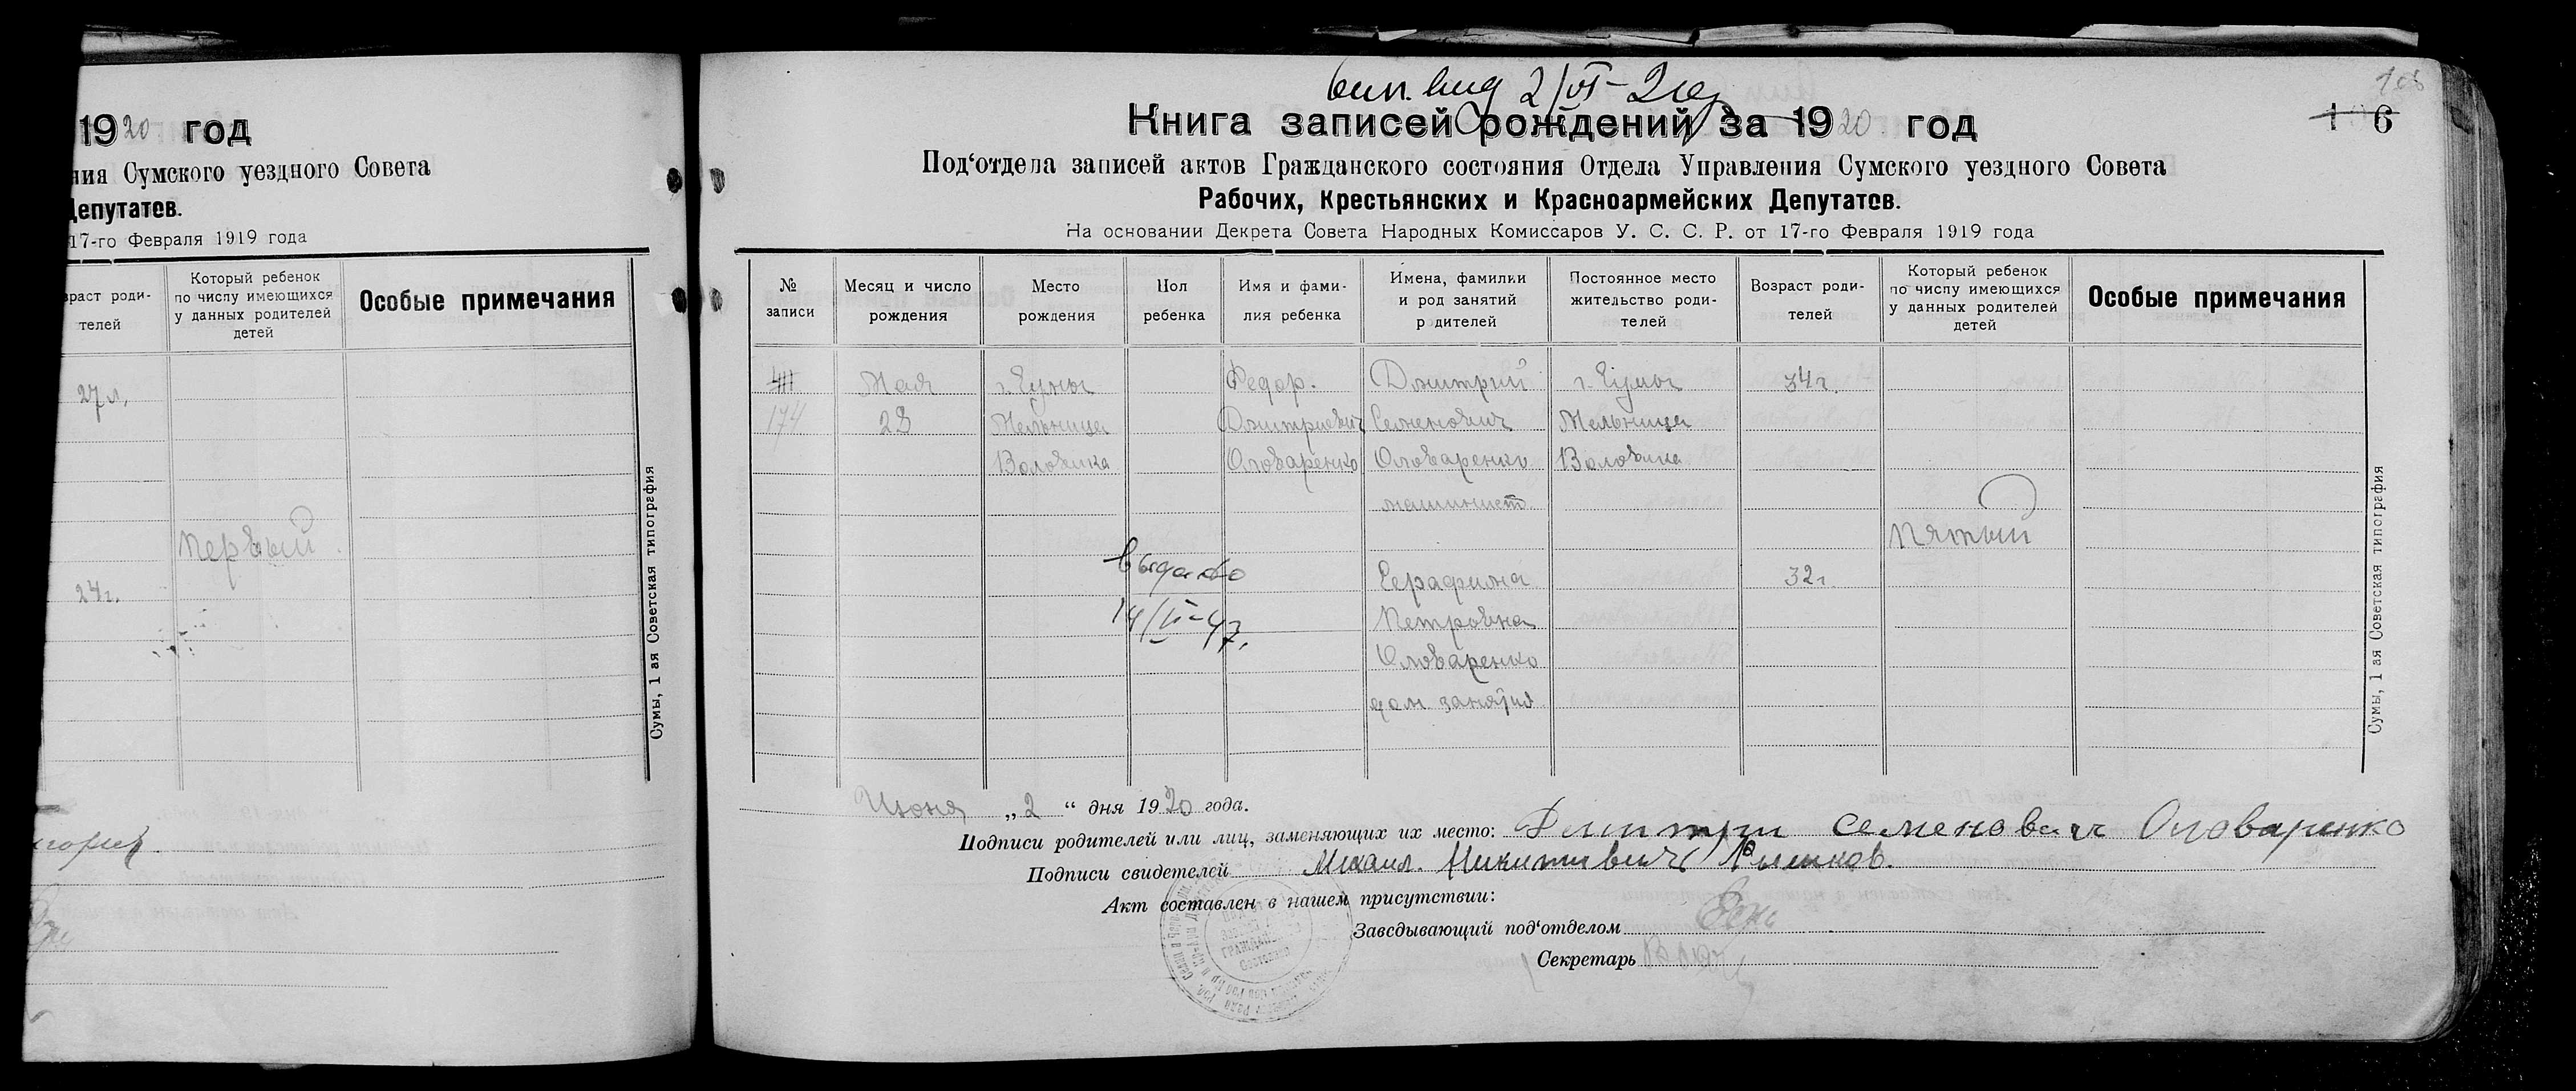 1920 год
ния Сумского уездного Совета
Депутатов.
17-го Февраля 1919 года
раст роди-
телей
Который ребенок
по числу имеющихся
у данных родителей
детей
Особые примечания
27 л.
Первый
24 г.
Сумы, 1 ая Советская типография
вып. 2/VI-20
106
1 6
Книга записей рождений за 1920 год
Под‘отдела записей актов Гражданского состояния Отдела Управления Сумского уездного Совета
Рабочих, Крестьянских и Красноармейских Депутатов.
На основании Декрета Совета Народных Комиссаров У. С. С. Р. от 17-го Февраля 1919 года
№
записи
Месяц и число
рождения
Место
рождения
Пол
ребенка
Имя и фами-
лия ребенка
Имена, фамилии
и род занятий
родителей
Постоянное место
жительство роди-
телей
Возраст роди-
телей
Который ребенок
по числу имеющихся
у данных родителей
детей
Особые примечания
174
Мая
28
г. Сумы
Мельница
Федор.
Дмитриевич
Оловаренко
Дмитрий
Семенович
Оловаренко
машинист
г. Сумы
Мельница
34 г.
Пятый
выдано
14/II-47.
Серафима
Петровна
Оловаренко
дом. занятия
32 г.
Сумы, 1 ая Советская типография
Июня „2“ дня 1920 года.
Подписи родителей или лиц, заменяющих их место: Дмитри Семенович Оловаренко
Подписи свидетелей Михаил. Никитивич
Акт составлен в нашем присутствии:
Заведывающий под‘отделом
Секретарь